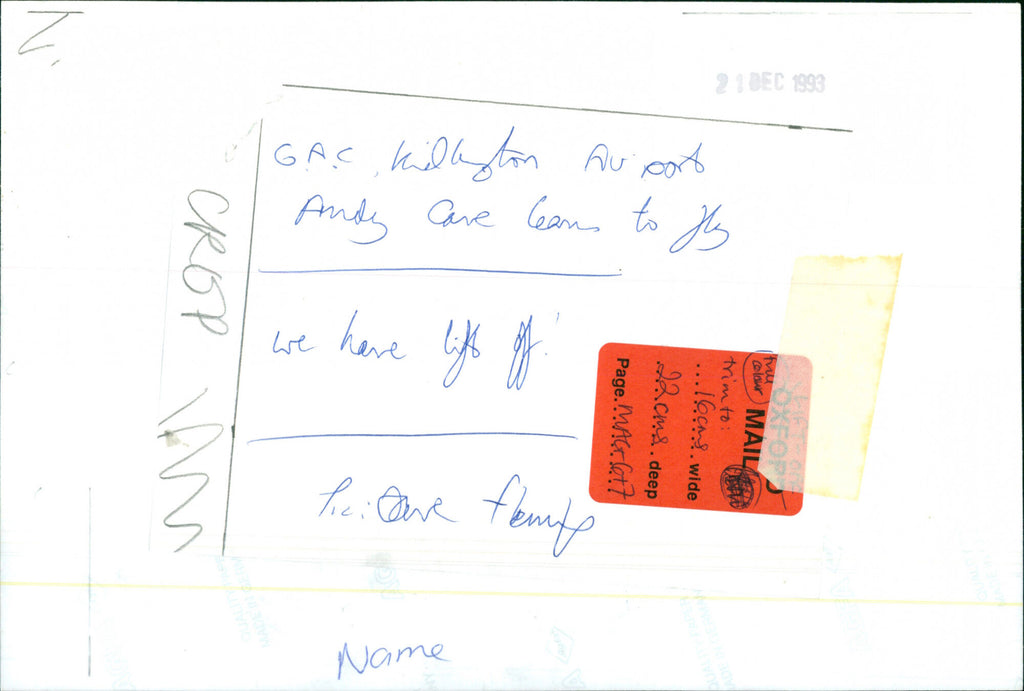 21 DEC 1993
G.A.C. Kidlington Airport
Andy Cave learns to fly
we have lift off!
Pic: Dave Fleming
Name
CROP
full colour
MAIL
OXFORD
trim to:
16cms. wide
22cms. deep
Page. MAG 6+7